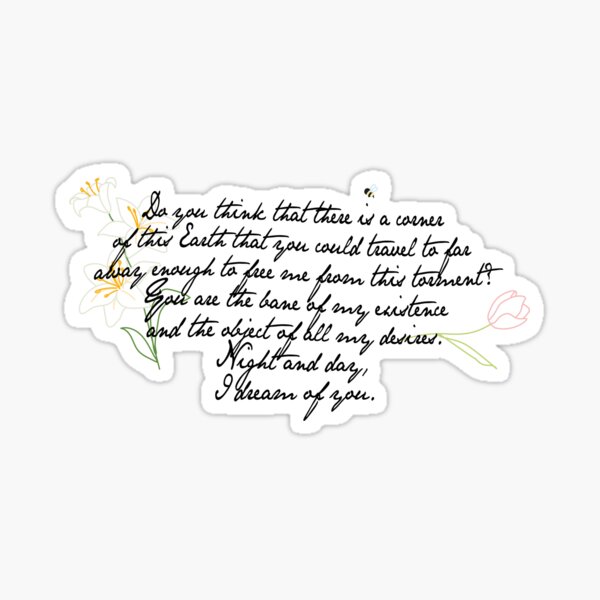 Do you think that there is a corner
of this Earth that you could travel to far
away enough to free me from this torment?
You are the bane of my existence
and the object of all my desires.
Night and day,
I dream of you.